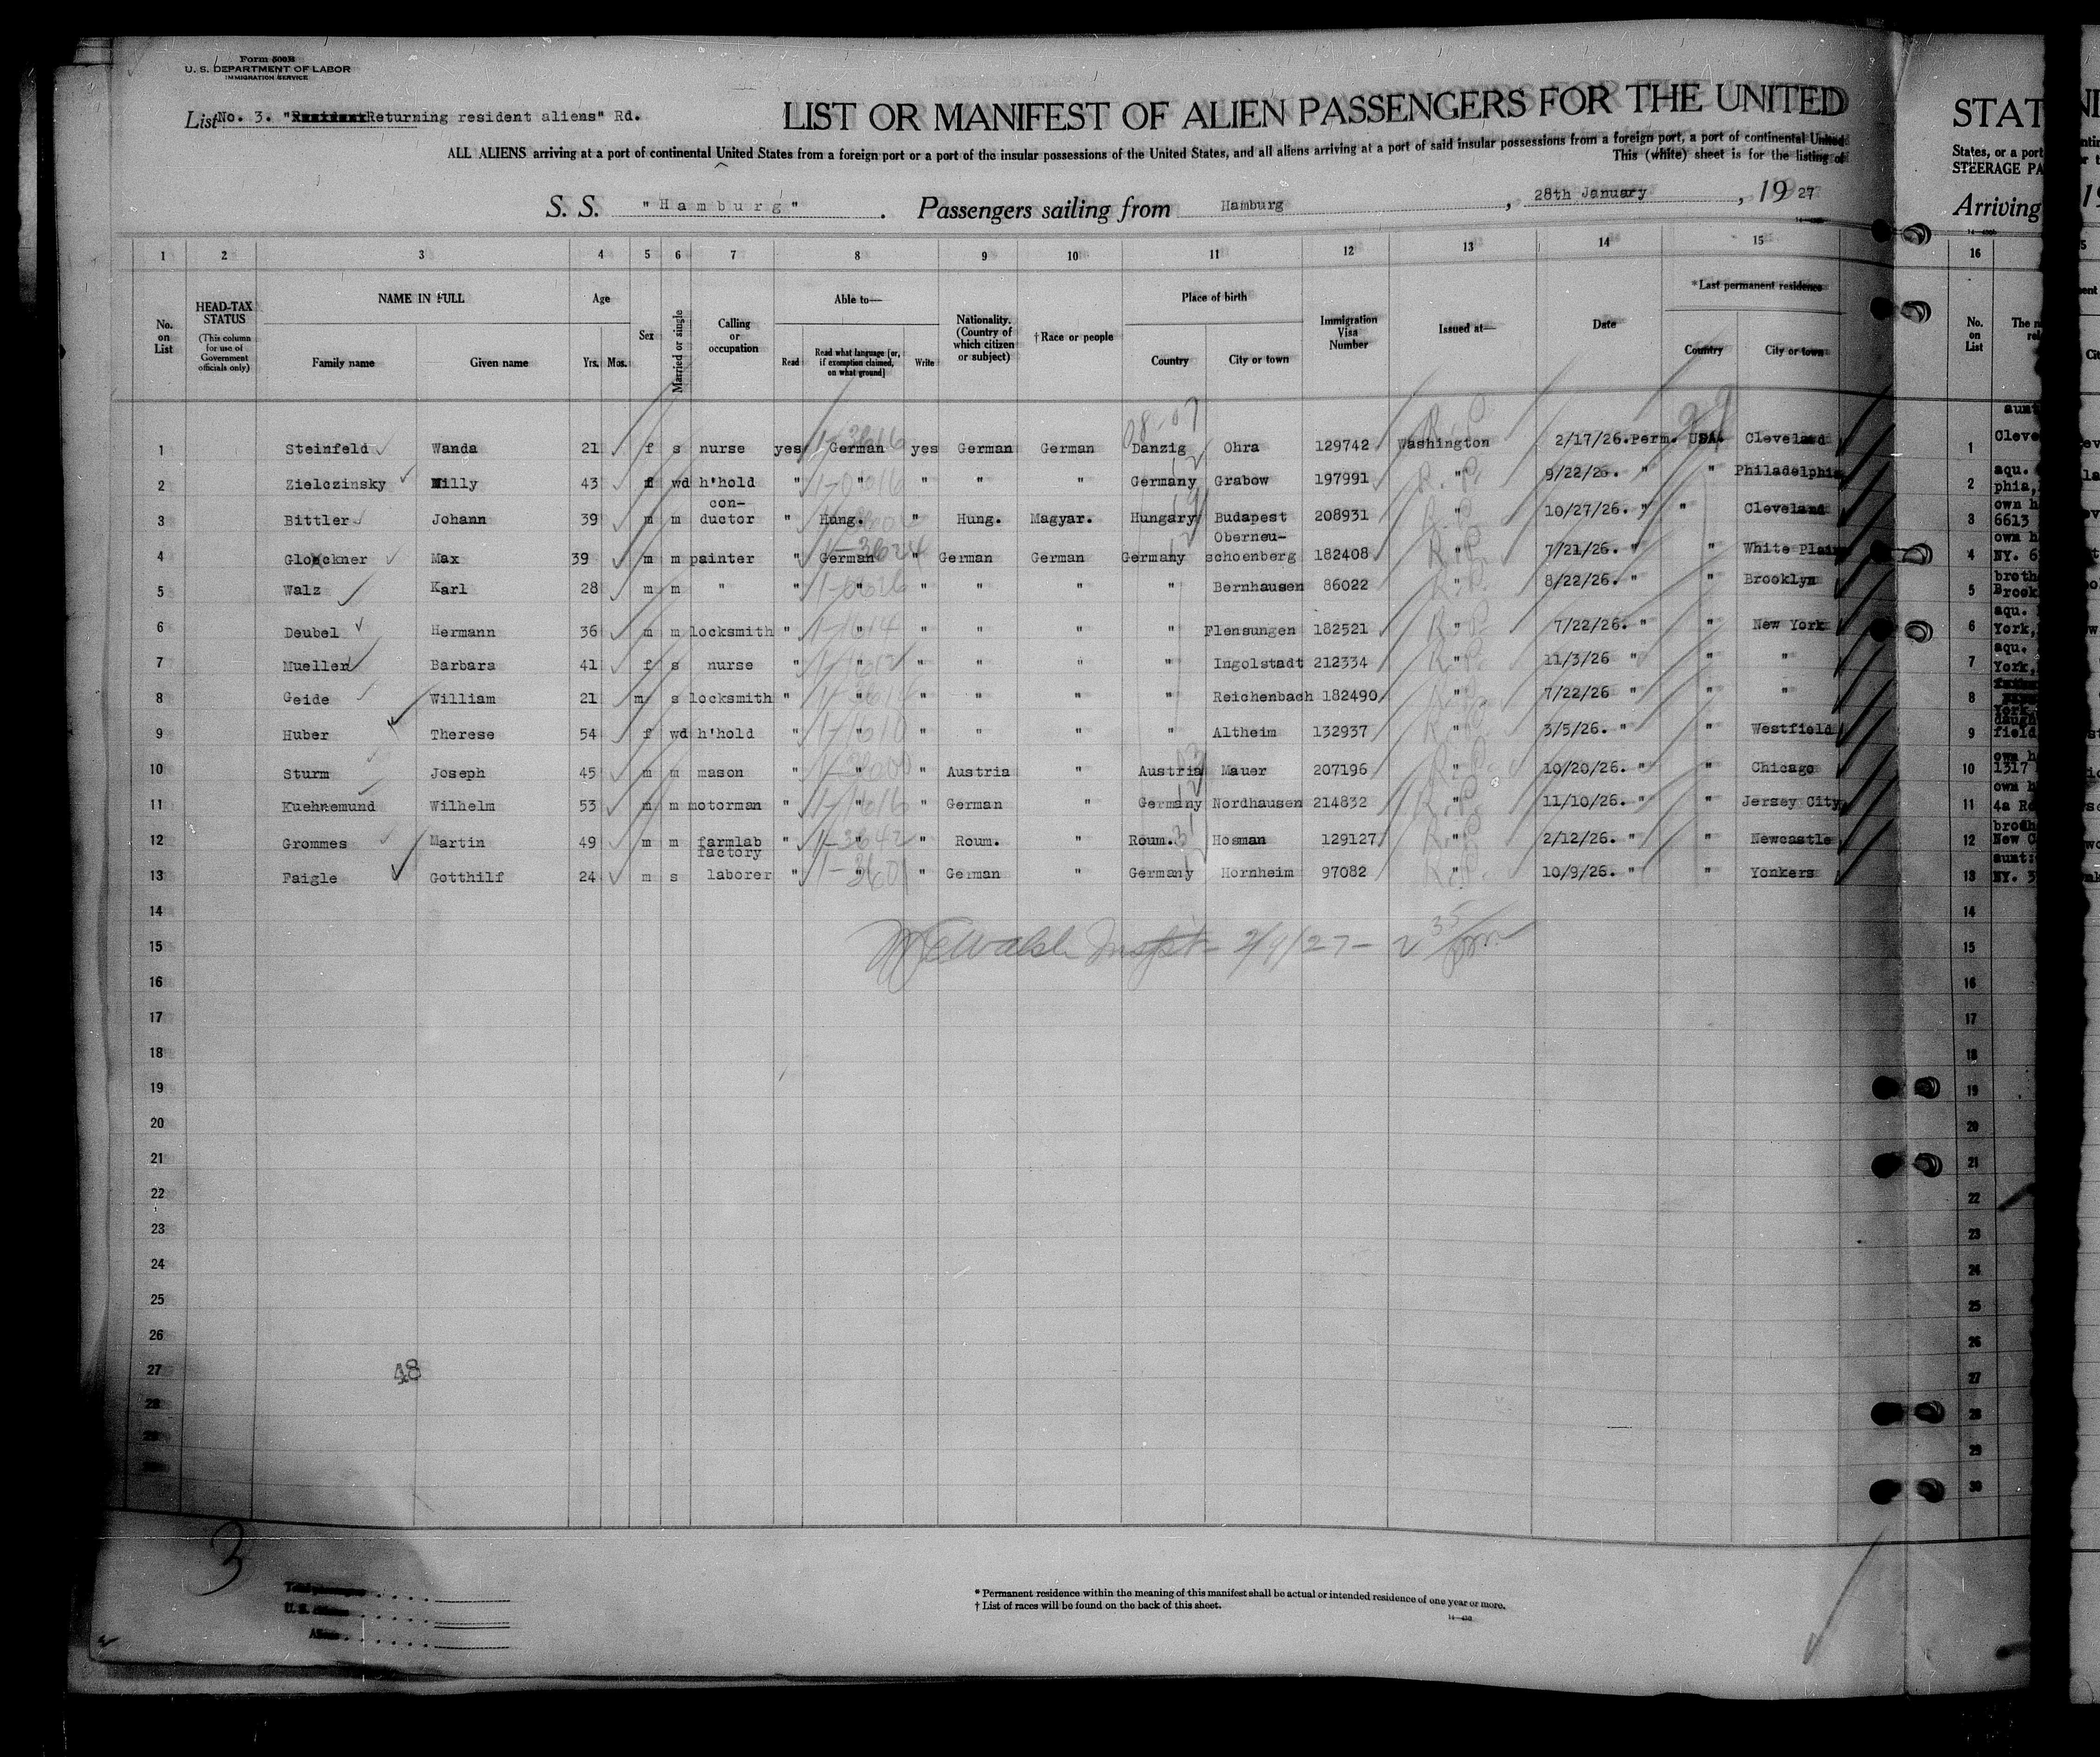 Form 500B
U. S. DEPARTMENT OF LABOR
IMMIGRATION SERVICE
List No. 3. "Returning resident aliens" Rd.
LIST OR MANIFEST OF ALIEN PASSENGERS FOR THE UNITED
ALL ALIENS arriving at a port of continental United States from a foreign port or a port of the insular possessions of the United States, and all aliens arriving at a port of said insular possessions from a foreign port, a port of continental United
This (white) sheet is for the listing of
S. S. "Hamburg" . Passengers sailing from Hamburg , 28th January , 1927
1 2 3 4 5 6 7 8 9 10 11 12 13 14 15
No. on List
HEAD-TAX STATUS
(This column for use of Government officials only)
NAME IN FULL
Family name Given name
Age
Yrs. Mos.
Sex
Married or single
Calling or occupation
Able to—
Read Read what language [or, if exemption claimed, on what ground] Write
Nationality. (Country of which citizen or subject)
†Race or people
Place of birth
Country City or town
Immigration Visa Number
Issued at—
Date
*Last permanent residence
Country City or town
1 Steinfeld Wanda 21 f s nurse yes German yes German German Danzig Ohra 129742 Washington 2/17/26. Perm. USA. Cleveland
2 Zielczinsky Willy 43 f wd h'hold " " " " " Germany Grabow 197991 " 9/22/26. " " Philadelphia
3 Bittler Johann 39 m m con-ductor " Hung. " Hung. Magyar. Hungary Budapest 208931 " 10/27/26. " " Cleveland
4 Gloeckner Max 39 m m painter " German " German German Germany Oberneu-schoenberg 182408 " 7/21/26. " " White Plain
5 Walz Karl 28 m m " " " " " " " Bernhausen 86022 " 8/22/26. " " Brooklyn
6 Deubel Hermann 36 m m locksmith " " " " " " Flensungen 182521 " 7/22/26. " " New York
7 Mueller Barbara 41 f s nurse " " " " " " Ingolstadt 212334 " 11/3/26 " " "
8 Geide William 21 m s locksmith " " " " " " Reichenbach 182490 " 7/22/26 " " "
9 Huber Therese 54 f wd h'hold " " " " " " Altheim 132937 " 3/5/26. " " Westfield
10 Sturm Joseph 45 m m mason " " " Austria " Austria Mauer 207196 " 10/20/26. " " Chicago
11 Kuehnemund Wilhelm 53 m m motorman " " " German " Germany Nordhausen 214832 " 11/10/26. " " Jersey City
12 Grommes Martin 49 m m farmlab " " " Roum. " Roum. Hosman 129127 " 2/12/26. " " Newcastle
13 Faigle Gotthilf 24 m s factory laborer " " " German " Germany Hornheim 97082 " 10/9/26. " " Yonkers
14
15
16
17
18
19
20
21
22
23
24
25
26
27
28
29
30
48
3
Total passengers
U. S. citizens
Aliens
* Permanent residence within the meaning of this manifest shall be actual or intended residence of one year or more.
† List of races will be found on the back of this sheet.
STAT
States, or a port
STEERAGE PA
Arriving
16
No. on List
1 Cleve
2 aqu. phia,
3 own h 6613
4 own h NY. 6
5 broth Brook
6 aqu. York,
7 aqu. York,
8 York
9 daugh field
10 own h 1317
11 own h 4a Ro
12 broth New C
13 aunt: NY. 3
14
15
16
17
18
19
20
21
22
23
24
25
26
27
28
29
30